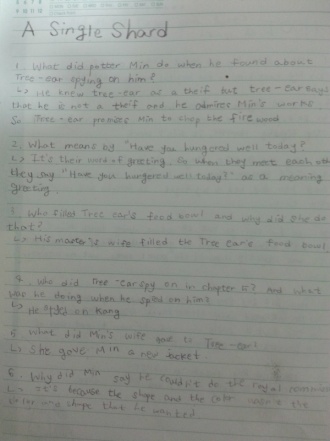 A Single Shard
1. What did potter Min do when he found about
Tree-ear spying on him?
↳ He knew tree-ear as a theif but tree-ear says
that he is not a theif and he admires Min's works
So Tree-ear promises Min to chop the fire wood
2. What means by "Have you hungered well today?
↳ It's their word of greeting. So when they meet each
they say "Have you hungered well today?" as a meaning
greeting.
3. Who filled Tree ear's food bowl and why did she do
that?
↳ His master's wife filled the Tree ear's food bowl
4. who did Tree-ear spy on in chapter 5? And what
was he doing when he spied on him?
↳ He spied on Kang
5. What did Min's wife gave to Tree-ear?
↳ She gave Min a new jacket
6. Why did Min say he couldn't do the royal
↳ It's because the shape and the color wasn't the
color and shape that he wanted